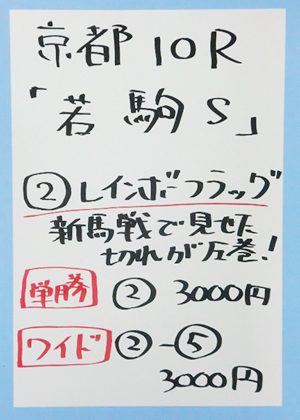 京都10R
「若駒S」
②レインボーフラッグ
新馬戦で見せた
切れが圧巻!
単勝 ② 3000円
ワイド ②-⑤
3000円